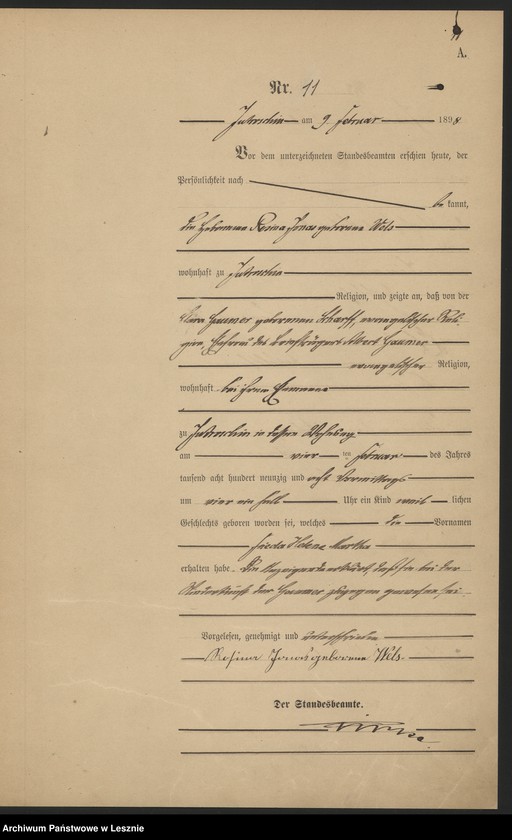 A.
Nr. 11
Jutroschin am 9. Februar 1898
Vor dem unterzeichneten Standesbeamten erschien heute, der
Persönlichkeit nach
be kannt,
die Hebamme Rosina Jonas geborene Wels
wohnhaft zu Jutroschin
Religion, und zeigte an, daß von der
Hammer geborenen Scharff, evangelischer Reli-
gion, Ehefrau des Briefträgers Albert Hammer
evangelischer Religion,
wohnhaft bei ihrem Ehemanne
zu Jutroschin in dessen Wohnung
am vier ten Februar des Jahres
tausend acht hundert neunzig und acht Vormittags
um vier ein halb Uhr ein Kind weib lichen
Geschlechts geboren worden sei, welches die Vornamen
Frieda Helene Martha
erhalten habe. Die Anzeigende erklärt, daß sie bei der
Niederkunft der Hammer zugegen gewesen sei.
Vorgelesen, genehmigt und unterschrieben
Rosina Jonas geborene Wels.
Der Standesbeamte.
Archiwum Państwowe w Lesznie